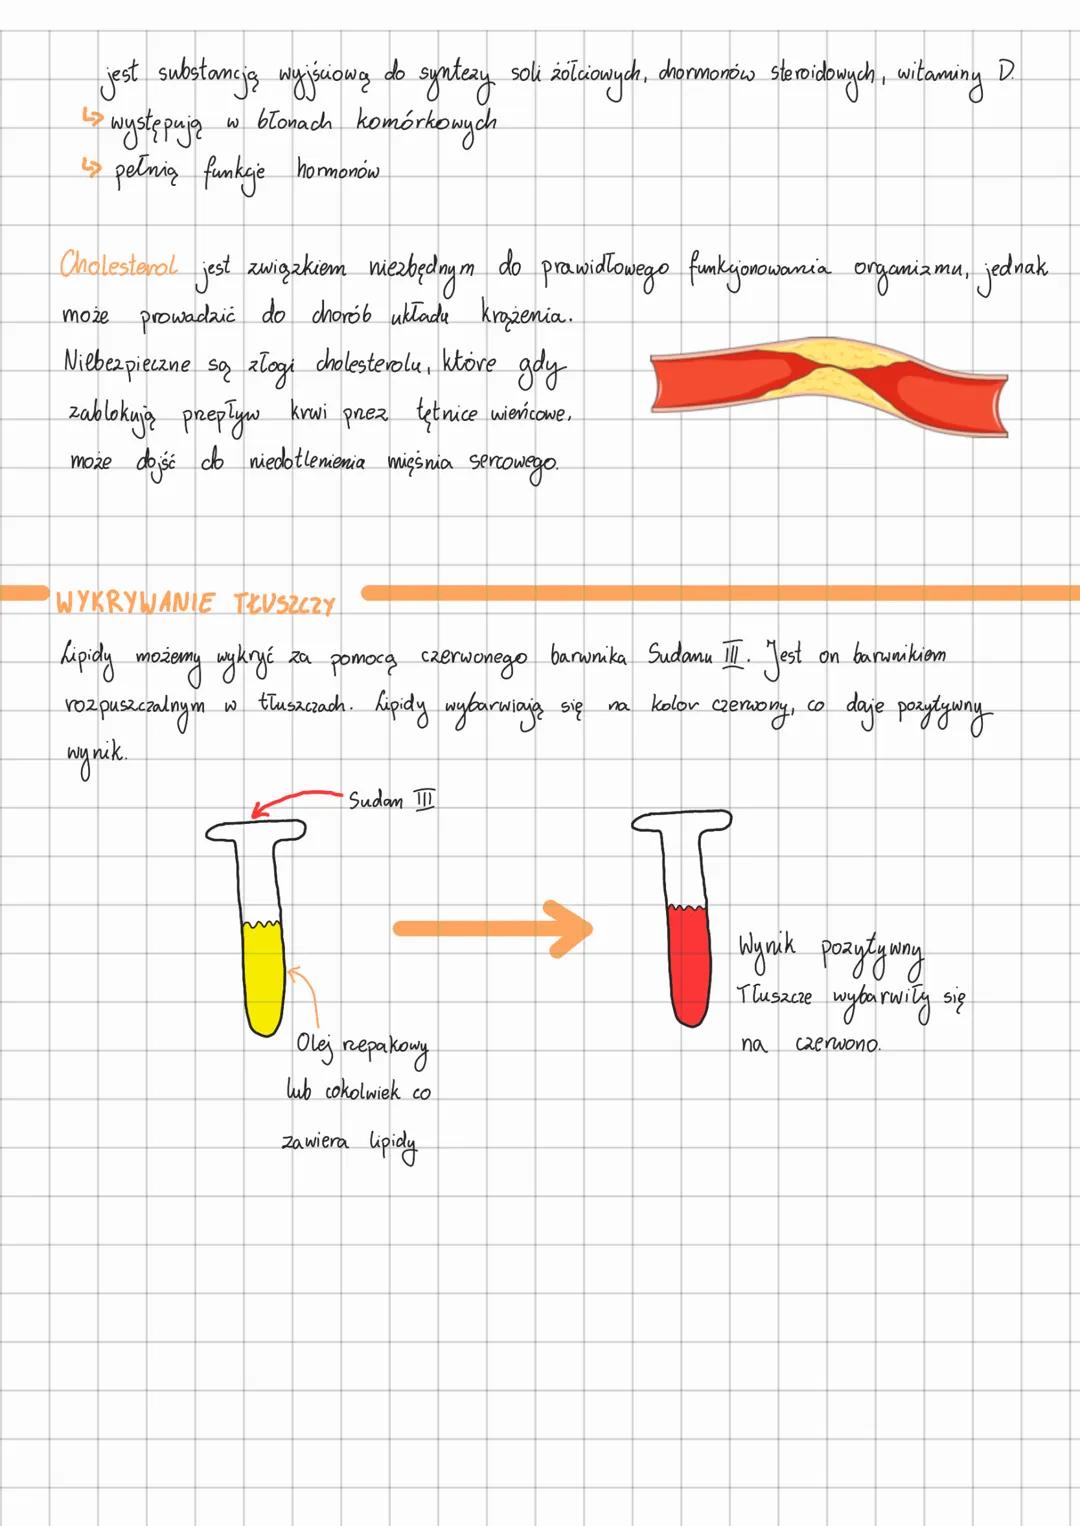 jest substancją wyjściową do syntezy soli żółciowych, chormonów steroidowych, witaminy D.
↳ występują w błonach komórkowych
↳ pełnią funkcje hormonów
Cholesterol jest związkiem niezbędnym do prawidłowego funkcjonowania organizmu, jednak
może prowadzić do chorób układu krążenia.
Niebezpieczne są złogi cholesterolu, które gdy
zablokują przepływ krwi przez tętnice wieńcowe,
może dojść do niedotlenienia mięśnia sercowego.
WYKRYWANIE TŁUSZCZY
Lipidy możemy wykryć za pomocą czerwonego barwnika Sudanu III. Jest on barwnikiem
rozpuszczalnym w tłuszczach. Lipidy wybarwiają się na kolor czerwony, co daje pozytywny
wynik.
Sudan III
Wynik pozytywny
Tłuszcze wybarwiły się
na czerwono.
Olej rzepakowy
lub cokolwiek co
zawiera lipidy